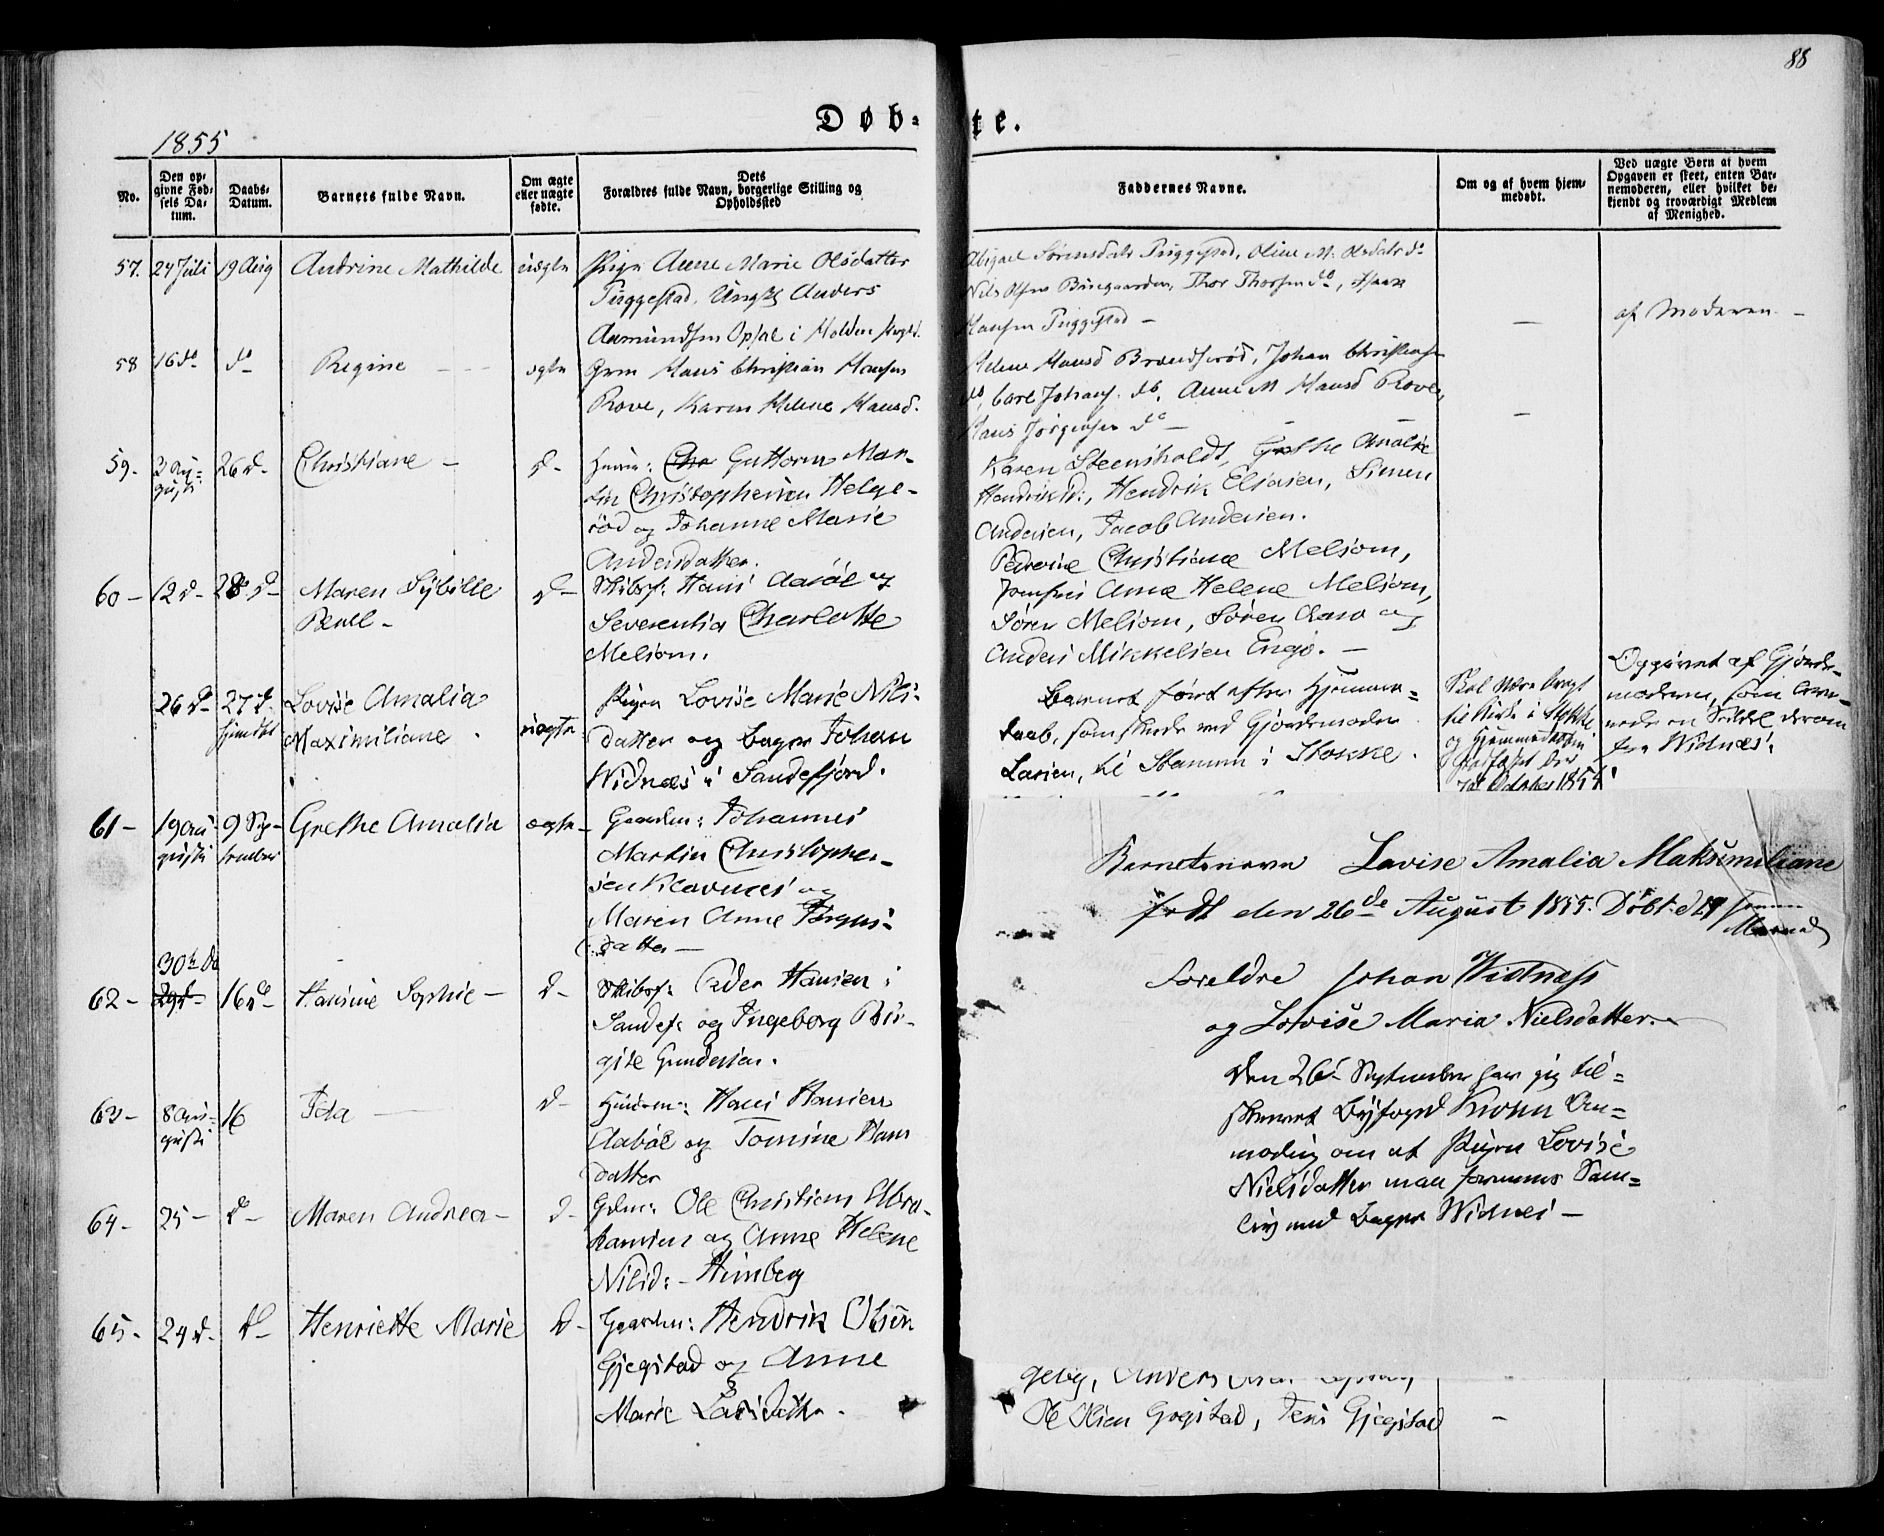 88
Døb-te.
1855
No.
Den op-
givne Fød-
sels Da-
tum.
Daabs-
Datum.
Barnets fulde Navn.
Om ægte
eller uægte
fødte.
Dets
Forældres fulde Navn, borgerlige Stilling og
Opholdssted
Faddernes Navne.
Om og af hvem hjem-
medøbt.
Ved uægte Børn af hvem
Opgaven er skeet, enten Bar-
nemoderen, eller hvilket be-
kjendt og troværdigt Medlem
af Menighed.
57. 24 Juli 19 Aug Andrine Mathilde uægte Pige Anne Marie Olsdatter
Puggestad, Ungk Anders
Aamundsen Opsal i Holden
Abigael Sørensdatr Puggestad, Oline M. Olsdatr do
Nils Olsen Bu­egaarden, Thor Thorsen do, Haak
Hansen Puggestad —
—
af Moderen —
58 16 do do Regine ægte Grm Hans Christian Hansen
Rove, Karen Helene Hansd.
Helene Hansd Brændserød, Johan Christensen
do, Carl Johans. do, Anne M Hansd Rove,
Hans Jørgensen do —
—
59. 2 Au-
gusti 26 d- Christiane — d- Huusm: Chr Guttorm Mar-
tin Christophersen Helge-
rød og Johanne Marie
Andersdatter.
Karen Steensholdt, Grethe Amalie
Hendriksd:, Hendrik Eliasen, Simen
Andersen, Jacob Andersen.
60 — 12 d- 28 d- Maren Sybille
Beull - d- Skibsf: Hans Aasøl og
Severentia Charlotte
Melsom.
Pedrine Christiane Melsom,
Jomfru Anne Helene Melsom,
Søren Melsom, Søren Aasø og
Anders Mikkelsen Engø. —
26 d- 27 d.
hjemdbt Lovise Amalia
Maximiliane. uægte Pigen Lovise Marie Nils-
datter og Bager Johan
Widnæs i Sandefjord.
Barnet ført efter Hjemme-
daab, som skede ved Gjordemoder
Larsen, til Stamm i Stokke.
Skal være bragt
til Kirke i Stokke
og Hjemmedaaben
stadfæstet der
Oktober 1855!
Opgivet af Gjorde-
moderen, som leve-
rede en Seddel derom
fra Widnæs.
61 — 19 Au-
gusti 9 Sep-
tember Grethe Amalia ægte — Gaardm: Johannes
Martin Christopher-
sen Klavnes og
Maren Anne
datter —
62 — 30te do
29 d- 16 d- Hansine Sophie — d- Skibsf: Peder Hansen i
Sandef: og Ingeborg Bir-
gite Gundersen.
63 — 8 Au-
gusti 16 Ida — d- Huusm: Hans Hansen
Aabøl og Tomine Hans
datter
64 — 25 — d- Maren Andrea — d- Gdm: Ole Christian Abra-
hamsen og Anne Helene
Nilsd: — Himberg
65 — 24 d- d- Henriette Marie d- Gaardm: Hendrik Olsen
Gjegstad og Anne
Marie Larsdatter.
Barnetsnavn Lovise Amalia Maksimiliane
født den 26de August 1855. Døbt d 27 samme
Maaned
Foreldre Johan Widness
og Lovise Maria Nielsdatter.
Den 26. September har jeg til-
skrevet Byfoged Krohn An-
modning om at Pigen Lovise
Nielsdatter maa formenes Sam-
liv med Bager Widnes —
Ole Olsen Gogstad, Jens Gjegstad —